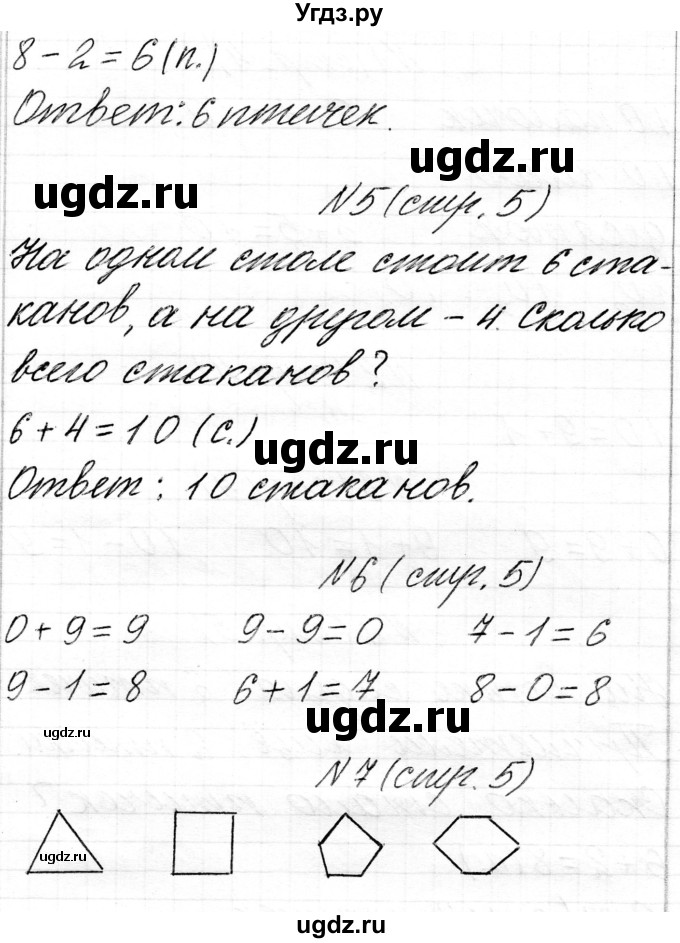 Угдз.ру
8 - 2 = 6 (п.)
Ответ: 6 птичек.
ugdz.ru
ugdz.ru
№5 (стр. 5)
На одном столе стоит 6 ста-
канов, а на другом - 4. Сколько
всего стаканов?
6 + 4 = 10 (с.)
ugdz.ru
Ответ: 10 стаканов.
№6 (стр. 5)
0 + 9 = 9 9 - 9 = 0 7 - 1 = 6
9 - 1 = 8 6 + 1 = 7 8 - 0 = 8
ugdz.ru
ugdz.ru
№7 (стр. 5)
ugdz.ru
ugdz.ru